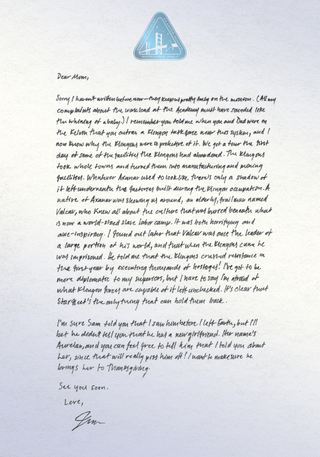 Dear Mom,
Sorry I haven't written before now—they keep us pretty busy on the . (All my
complaints about the workload at the Academy must have sounded like
the whining of a baby.) I remember you told me when you and Dad were on
the Kelvin that you outran a Klingon task force near this system, and I
now know why the Klingons were so protective of it. We got a tour the first
day of some of the facilities the Klingons had abandoned. The Klingons
took whole towns and turned them into manufacturing and mining
facilities. Whatever used to look like, there's only a shadow of
it left underneath the factories built during the Klingon occupation. A
native of was showing us around, an elderly, frail man named
, who knew all about the culture that was buried beneath what
is now a world-sized slave labor camp. It was both horrifying and
awe-inspiring. I found out later that was once the leader of
a large portion of his world, and that when the Klingons came he
was imprisoned. He told me that the Klingons crushed resistance in
the first year by executing thousands of hostages! I've got to be
more diplomatic to my superiors, but I have to say I'm afraid of
what Klingon forces are capable of if left unchecked. It's clear that
Starfleet's the only thing that can hold them back.
I'm sure Sam told you that I saw him before I left Earth, but I'll
bet he didn't tell you that he has a new girlfriend. Her name's
Aurelan, and you can feel free to tell him that I told you about
her, since that will really piss him off! I want to make sure he
brings her to Thanksgiving.
See you soon.
Love,
Jim